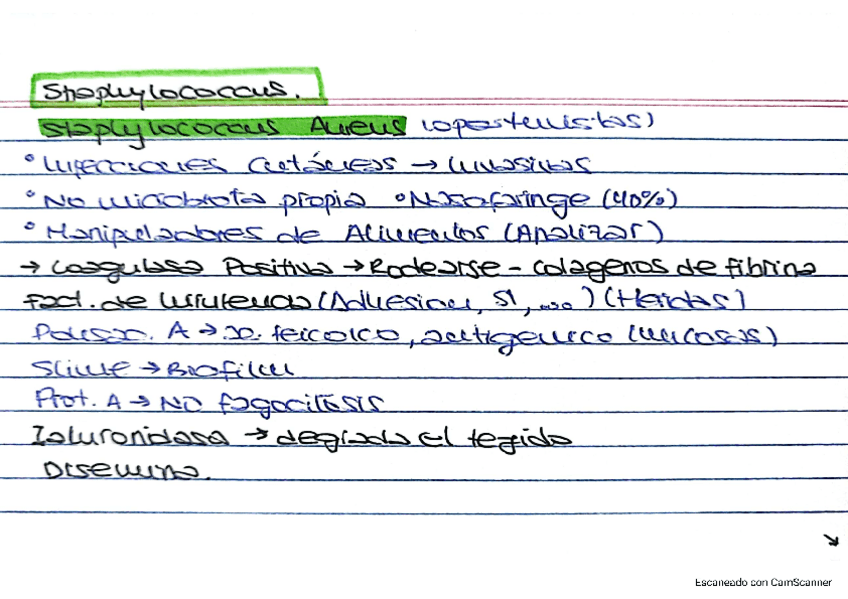 Staphylococcus.
Staphylococcus Aureus (oportunistas)
° Infecciones cutáneas → Invasivas
° No microbiota propia ° Nasofaringe (40%)
° Manipuladores de Alimentos (Analizar)
→ Coagulasa Positiva → Rodearse - colagenos de fibrina
Fact. de Virulencia (Adhesion, SI, ...) (Heridas)
Polisac. A → ac. teicoico, antigenico (mucosas)
Slime → Biofilm
Prot. A → NO fagocitosis
Ialuronidasa → degrada el tegido
Disemina.
↘
Escaneado con CamScanner